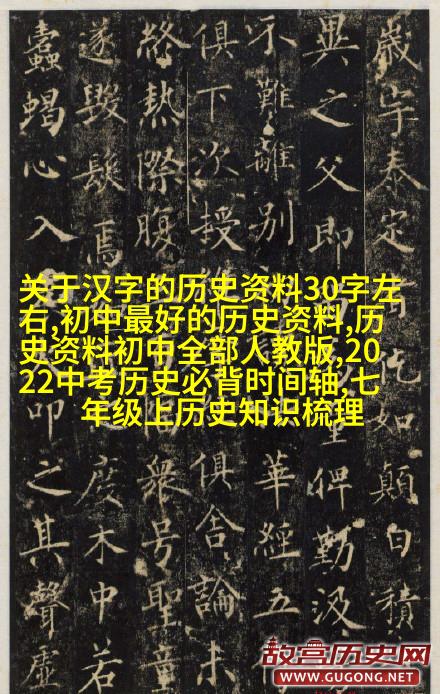 歲宇泰定者仡如顛白積
異之父即聖俾勤汲
不難離別華經五
俱下次授俱舍論未
終熱際腹衆号聖童
遂毀髮焉度木中若
蠹蝎心入卬之其聲虛
关于汉字的历史资料30字左
右,初中最好的历史资料,历
史资料初中全部人教版,20
22中考历史必背时间轴,七
年级上历史知识梳理
故宫历史网
WWW.GUGONG.NET